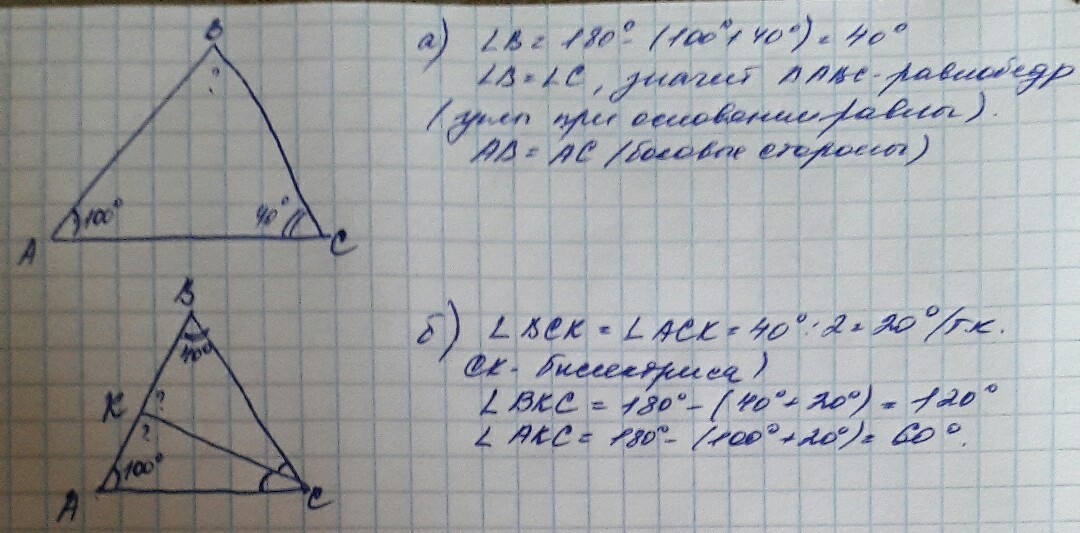 B
?
100°
40°
A
C
а) ∠B = 180° - (100° + 40°) = 40°
∠B = ∠C, значит ΔABC - равнобедр
(углы при основании равны).
AB = AC (боковые стороны)
B
40°
K
?
?
100°
A
C
б) ∠BCK = ∠ACK = 40° : 2 = 20° (т.к.
CK - биссектриса)
∠BKC = 180° - (40° + 20°) = 120°
∠AKC = 180° - (100° + 20°) = 60°.